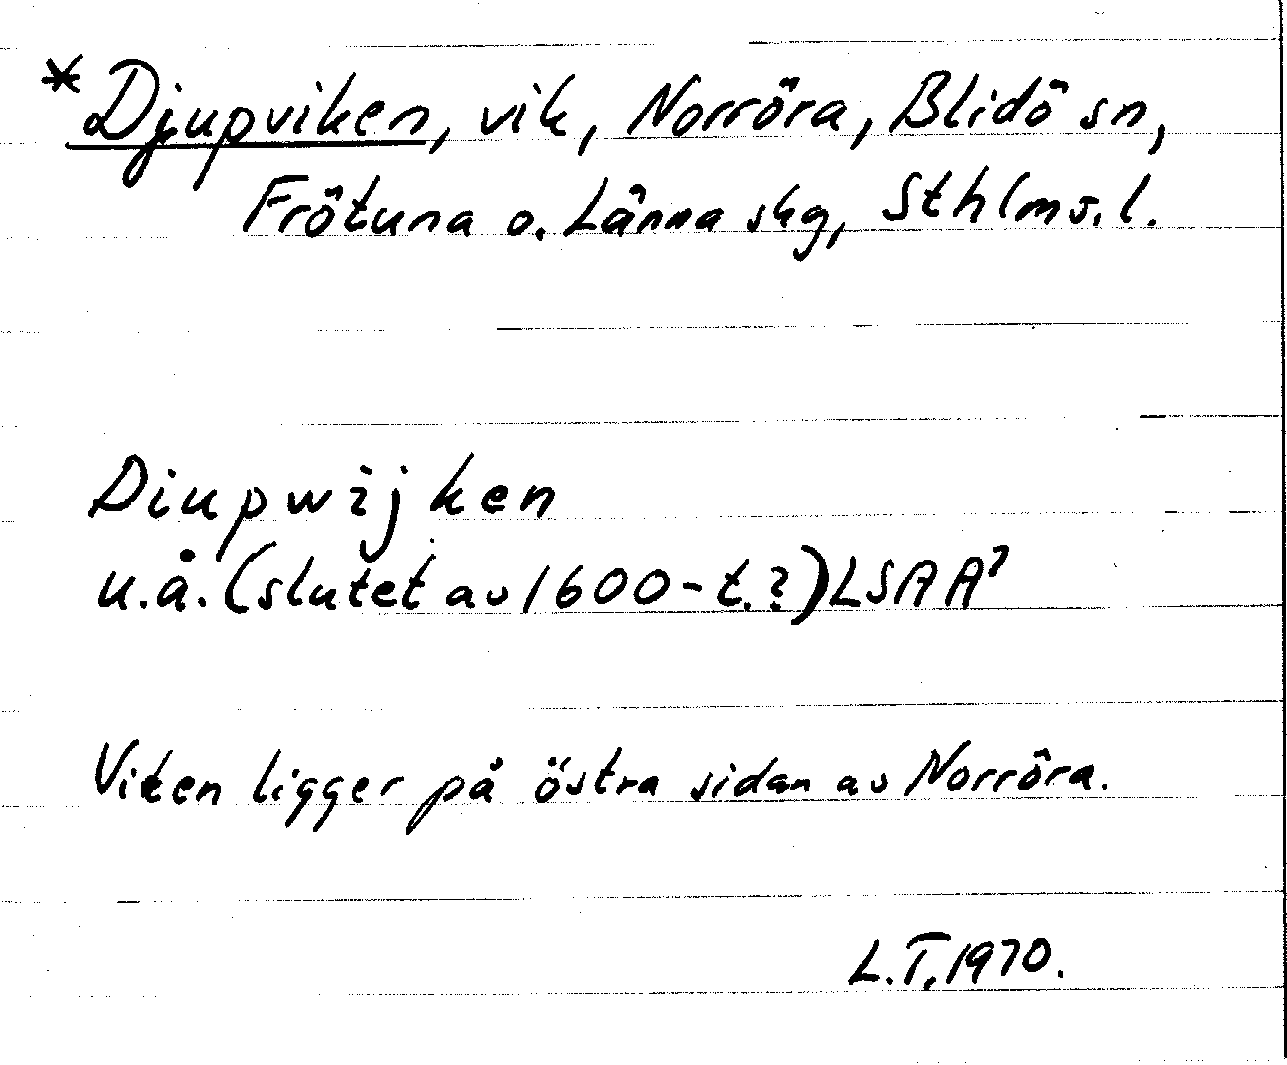 *Djupviken, vik, Norröra, Blidö sn,
Frötuna o. Länna skg, Sthlms. l.
Diupwijken
u.å. (slutet av 1600-t.?) LSA A7
Viken ligger på östra sidan av Norröra.
L.T. 1970.